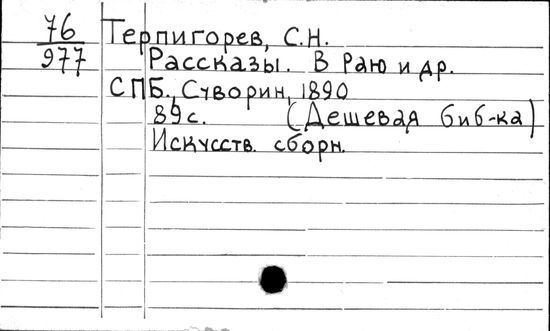 76 Терпигорев, С.Н.
977 Рассказы. В Раю и др.
СПБ., Суворин, 1890
89 с. (Дешевая биб-ка)
Искусств. сборн.